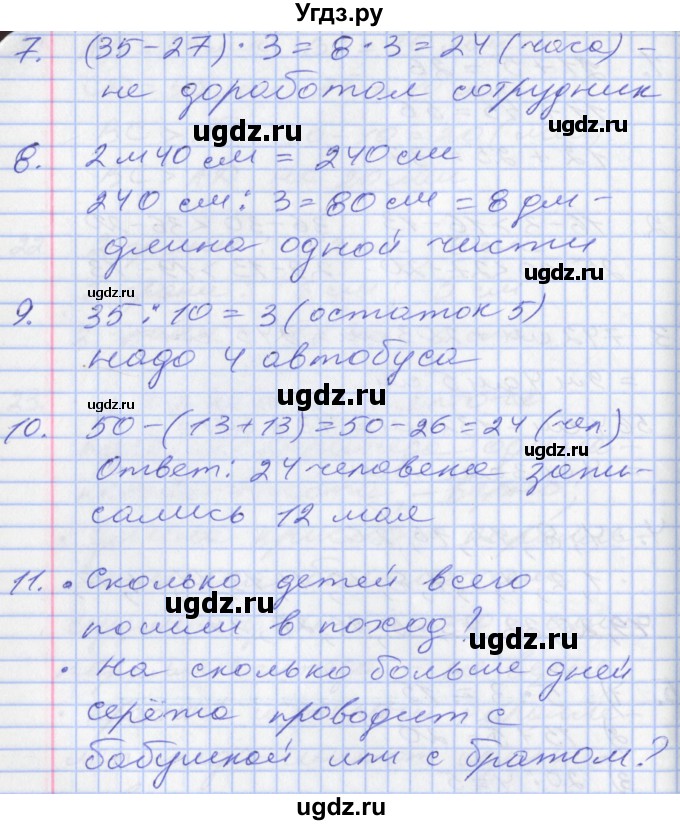 Угдз.ру
7. (35-27)·3=8·3=24 (часа) -
не доработал сотрудник
ugdz.ru ugdz.ru
8. 2м40см = 240см
240 см : 3=80см =8дм-
длина одной части
ugdz.ru ugdz.ru
9. 35:10=3(остаток 5)
надо 4 автобуса
ugdz.ru ugdz.ru
10. 50-(13+13)=50-26=24(чел.)
ugdz.ru
Ответ: 24 человека запи-
сались 12 мая
11. • Сколько детей всего
ugdz.ru
пошли в поход?
ugdz.ru
• На сколько больше дней
серёжа проводит с
бабушкой или с братом?
ugdz.ru